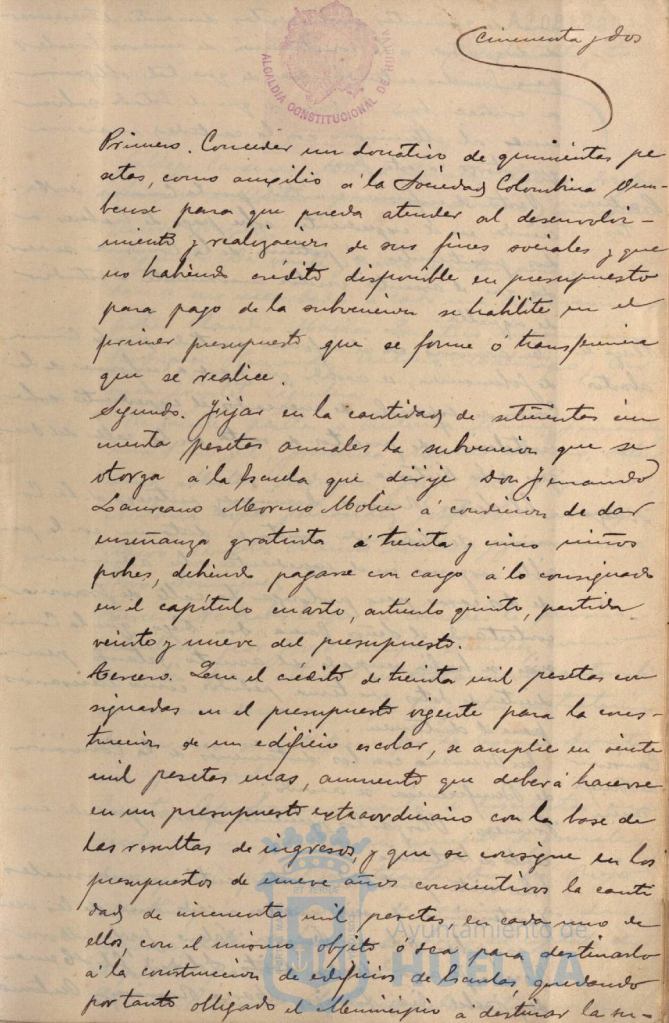 cincuenta y dos
ALCALDIA CONSTITUCIONAL DE HUELVA
Primero. Conceder un donativo de quinientas pe
setas, como auxilio á la Sociedad Colombina Onu-
bense para que pueda atender al desenvolvi-
miento y realización de sus fines sociales y que
no habiendo crédito disponible en presupuesto
para pago de la subvencion se habilite en el
primer presupuesto que se forme ó transferencia
que se realice.
Segundo. Fijar en la cantidad de setecientas cin
cuenta pesetas anuales la subvencion que se
otorga á la Escuela que dirije Don Fernando
Laureano Moreno á condicion de dar
enseñanza gratuita á treinta y cinco niños
pobres, debiendo pagarse con cargo á lo consignado
en el capítulo cuarto, artículo quinto, partida
veinte y nueve del presupuesto.
Tercero. Que el crédito de treinta mil pesetas con
signadas en el presupuesto vigente para la cons-
truccion de un edificio escolar, se amplie en veinte
mil pesetas mas, aumento que deberá hacerse
en un presupuesto extraordinario con la base de
las resultas de ingresos, y que se consigne en los
presupuestos de nueve años consecutivos la canti
dad de cincuenta mil pesetas, en cada uno de
ellos, con el mismo objeto ó sea para destinarlo
á la construccion de edificios de Escuelas, quedando
por tanto obligado el Municipio á destinar la su-
Ayuntamiento de
HUELVA